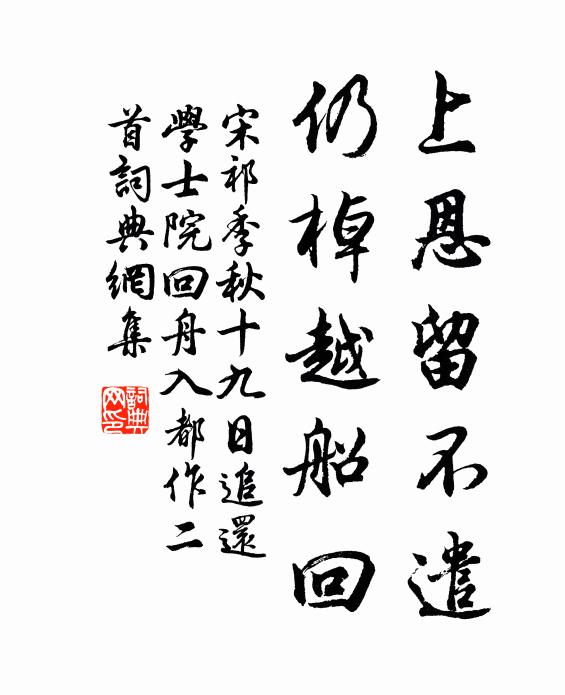 上恩留不遣
仍棹越船回
宋祁季秋十九日追還
學士院回舟入都作二
首詞典網集
詞典网印